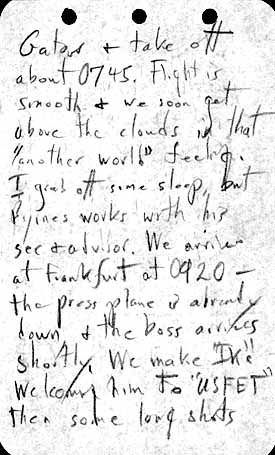 & take off
about 0745. Flight is
smooth & we soon get
above the clouds in that
"another world" feeling.
I grab off some sleep, but
works with his
sec & advisor. We arrive
at Frankfurt at 0920 –
the press plane is already
down & the boss arrives
shortly. We make "Ike"
Welcoming him to "USFET"
then some long shots